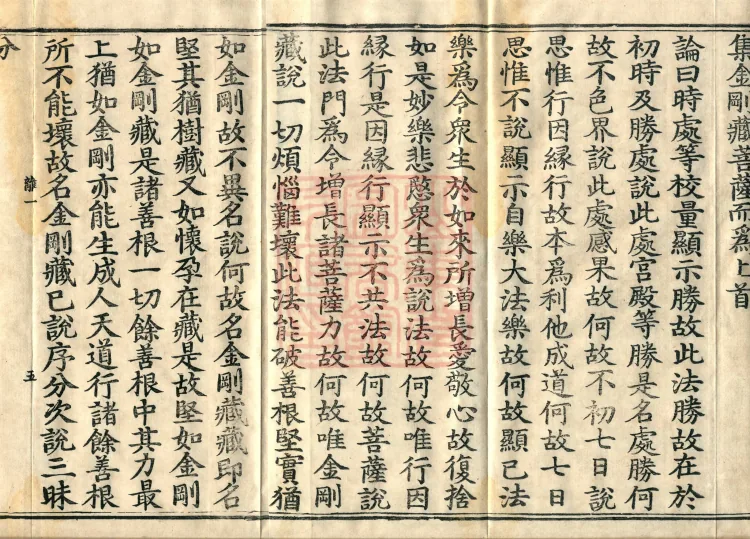 集金剛藏菩薩而爲上首
論曰時處等校量顯示勝故此法勝故在於
初時及勝處說此處宮殿等勝是名處勝何
故不色界說此處感果故何故不初七日說
思惟行因緣行故本爲利他成道何故七日
思惟不說顯示自樂大法樂故何故顯已法
樂爲令眾生於如來所增長愛敬心故復捨
如是妙樂悲愍眾生爲說法故何故唯行因
緣行是因緣行顯示不共法故何故菩薩說
此法門爲令增長諸菩薩力故何故唯金剛
藏說一切煩惱難壞此法能破善根堅實猶
如金剛故不異名說何故名金剛藏藏即名
堅其猶樹藏又如懷孕在藏是故堅如金剛
如金剛藏是諸善根一切餘善根中其力最
上猶如金剛亦能生成人天道行諸餘善根
所不能壞故名金剛藏已說序分次說三昧
分
離一
五